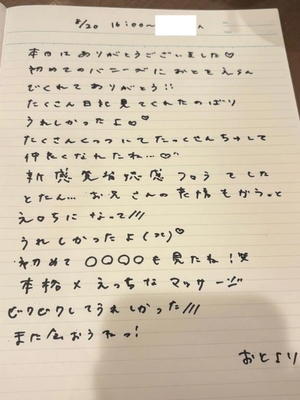 8/20 16:00〜
本日はありがとうございました♡
初めてのバニーズにおとをえらん
でくれてありがとう!!
たくさん日記見てくれたのばり
うれしかったよ
たくさんくっついてたっくさんちゅして
仲良くなれたね…♡
新感覚 フロうでした
とたん…お兄さんの表情もがらっと
えロちになって///
うれしかったよ
初めて〇〇〇〇も見たね!笑
本格×えっちなマッサージ
ビクビクしてうれしかった///
また会おうねっ!
おとより